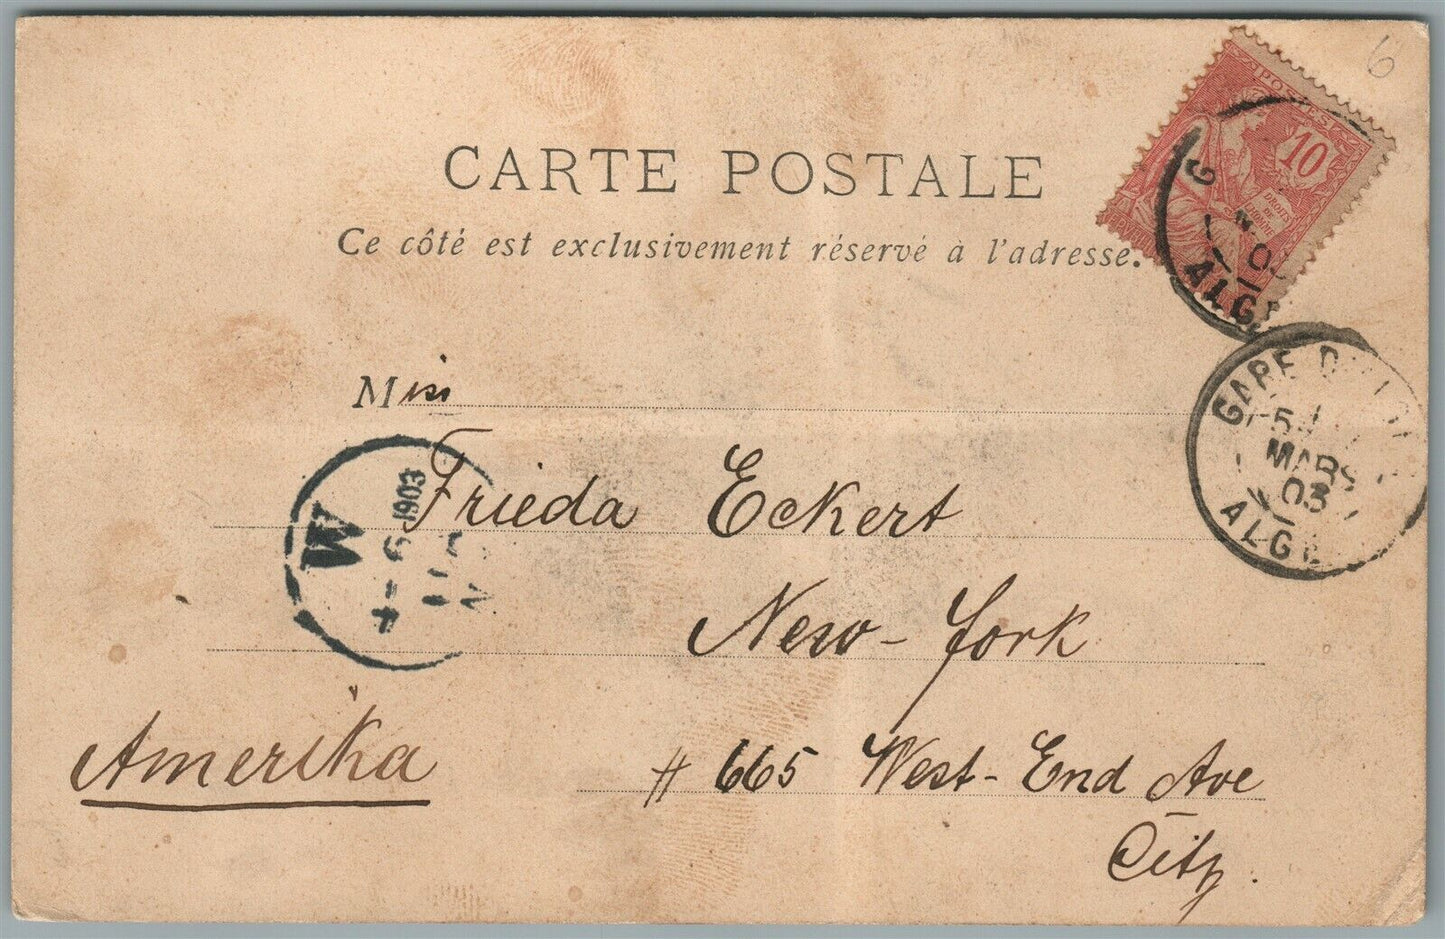 6
CARTE POSTALE
Ce côté est exclusivement réservé à l'adresse.
POSTES
10
DROITS
DE
L'HOMME
ALG
GARE
MARS
03
ALG
Miss
Frieda Eckert
New-York
# 665 West-End Ave
City.
Amerika
M
4-9
1903
11
N